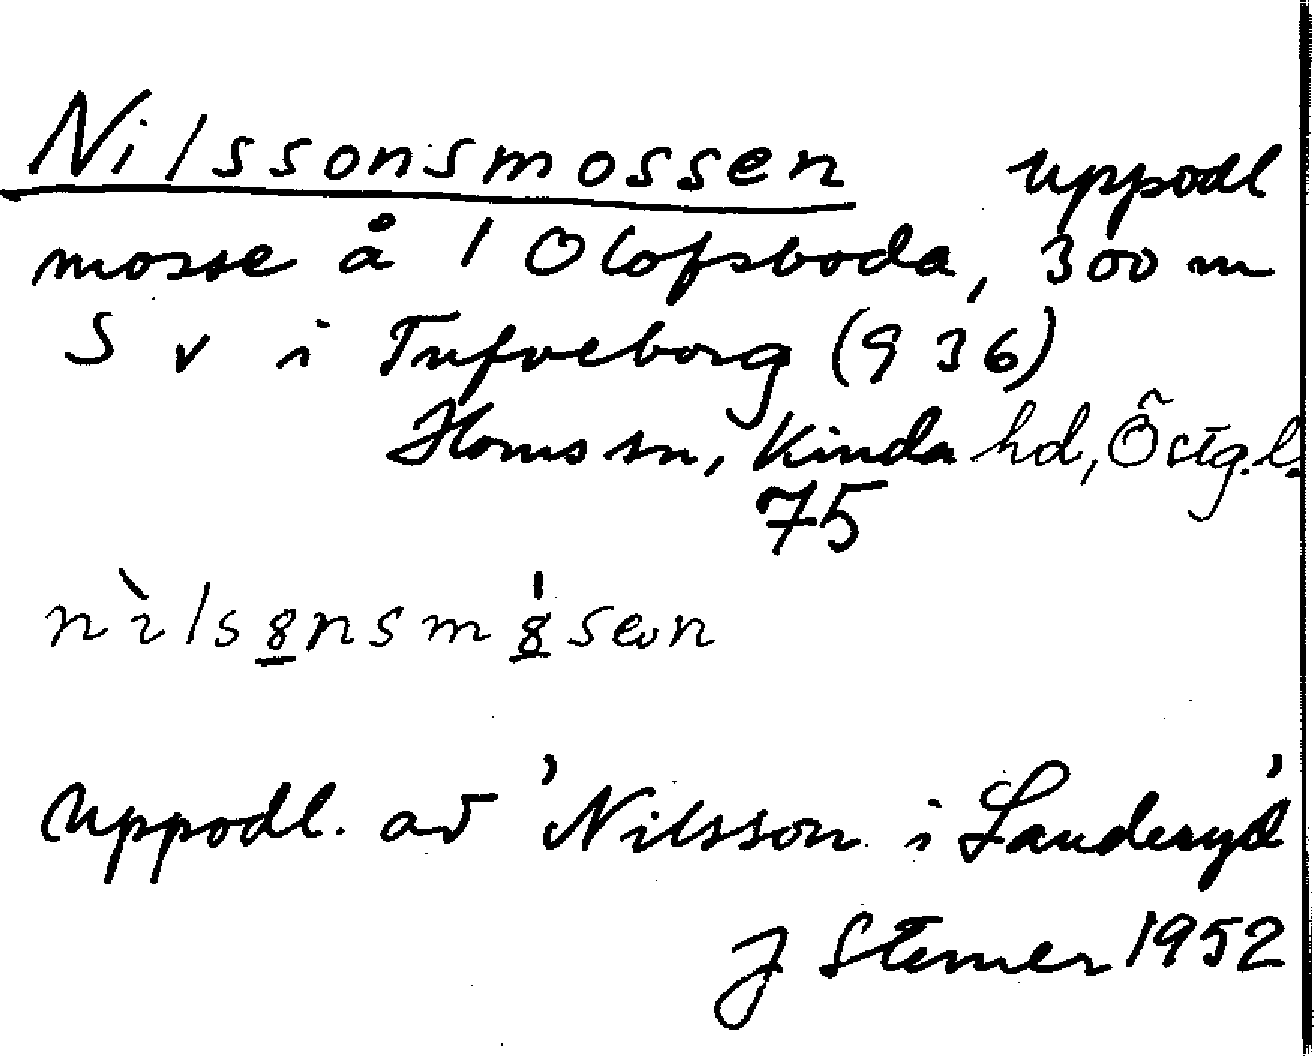 Nilssonsmossen uppodl
mosse å 1 Olofsboda, 300 m
S v i Tufveborg (936)
Horns sn, Kinda hd, Östg.l.
75
nìlsȣnsmȣ̍sen
Uppodl. av 'Nilsson i Landeryd'
J Sterner 1952